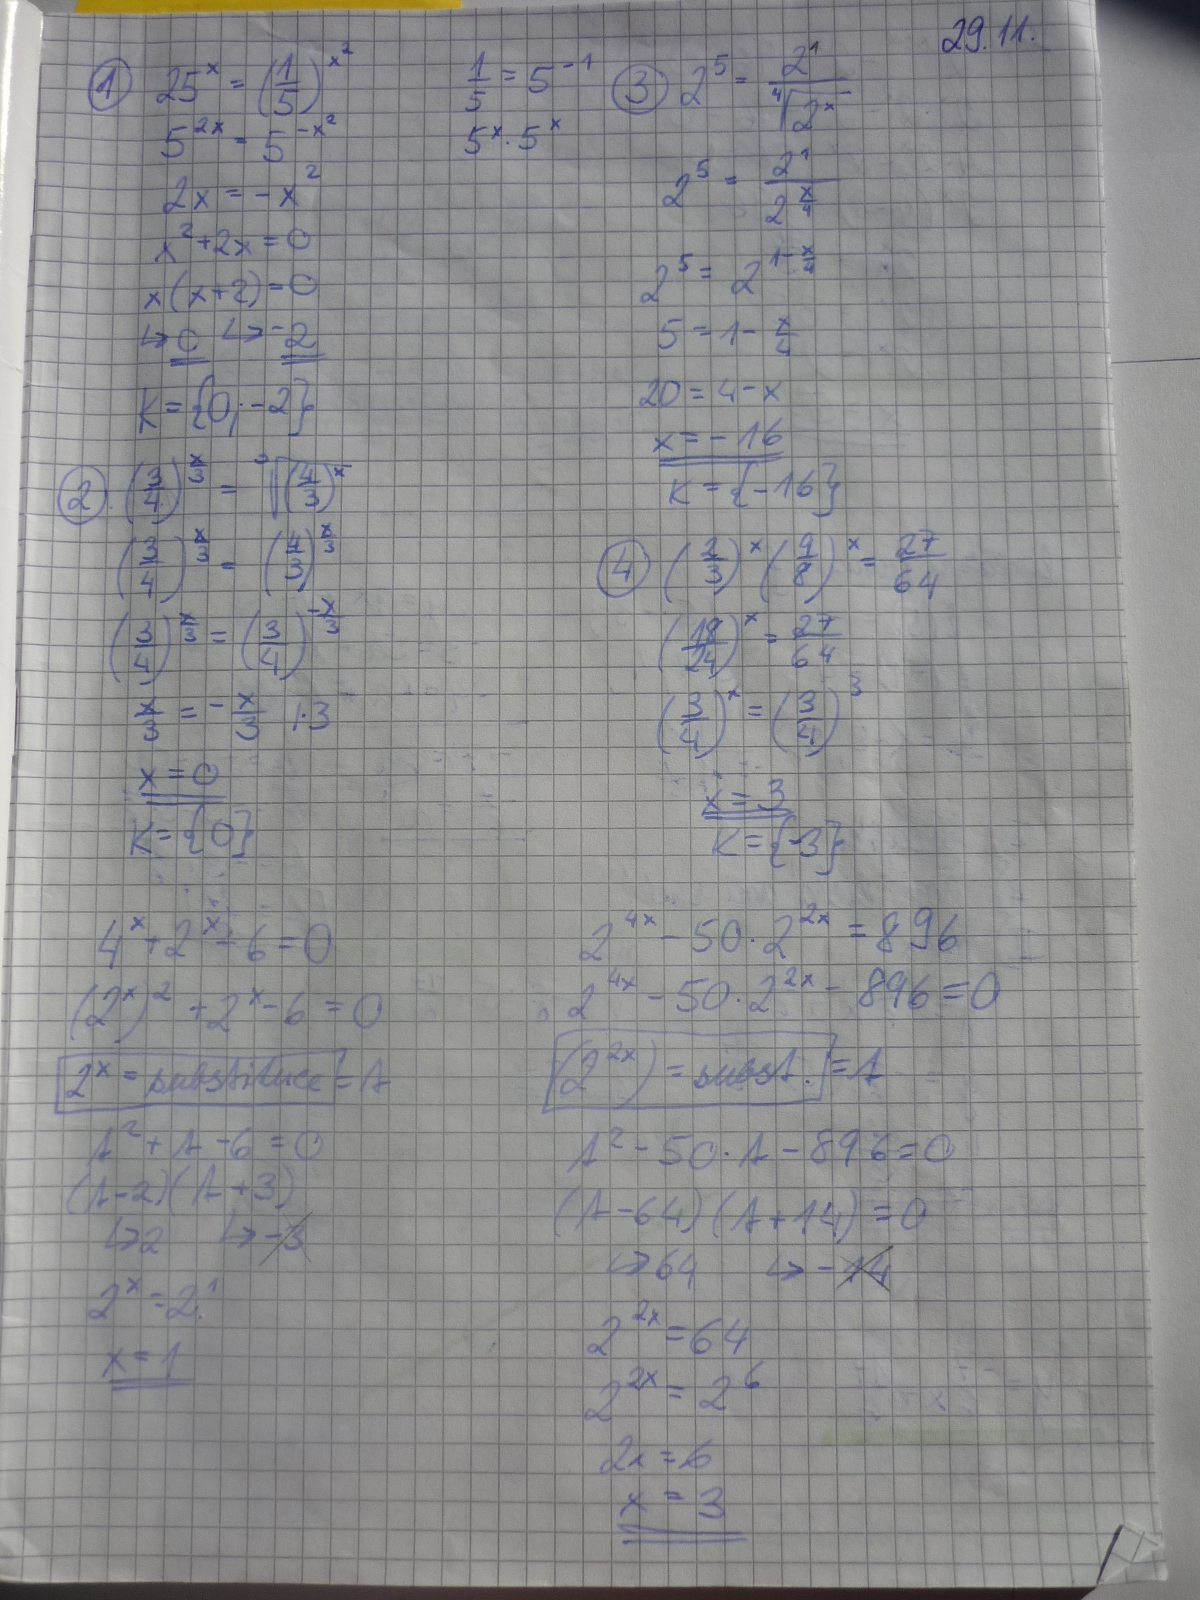 29.11.
① 25^x = (1/5)^x²
5^2x = 5^-x²
2x = -x²
x² + 2x = 0
x(x+2) = 0
↳ 0 ↳ -2
K = {0; -2}
1/5 = 5^-1
5^x · 5^x
② (3/4)^x/3 = ³√(4/3)^x
(3/4)^x/3 = (4/3)^x/3
(3/4)^x/3 = (3/4)^-x/3
x/3 = -x/3 /·3
x = 0
K = {0}
③ 2^5 = 2^1/⁴√2^x
2^5 = 2^1/2^x/4
2^5 = 2^1-x/4
5 = 1 - x/4
20 = 4 - x
x = -16
K = {-16}
④ (2/3)^x (9/8)^x = 27/64
(18/24)^x = 27/64
(3/4)^x = (3/4)^3
x = 3
K = {3}
4^x + 2^x - 6 = 0
(2^x)² + 2^x - 6 = 0
2^x = substituce = A
A² + A - 6 = 0
(A-2)(A+3)
↳ 2 ↳ -3
2^x = 2^1
x = 1
2^4x - 50 · 2^2x = 896
2^4x - 50 · 2^2x - 896 = 0
(2^2x) = subst. = A
A² - 50 · A - 896 = 0
(A-64)(A+14) = 0
↳ 64 ↳ -14
2^2x = 64
2^2x = 2^6
2x = 6
x = 3